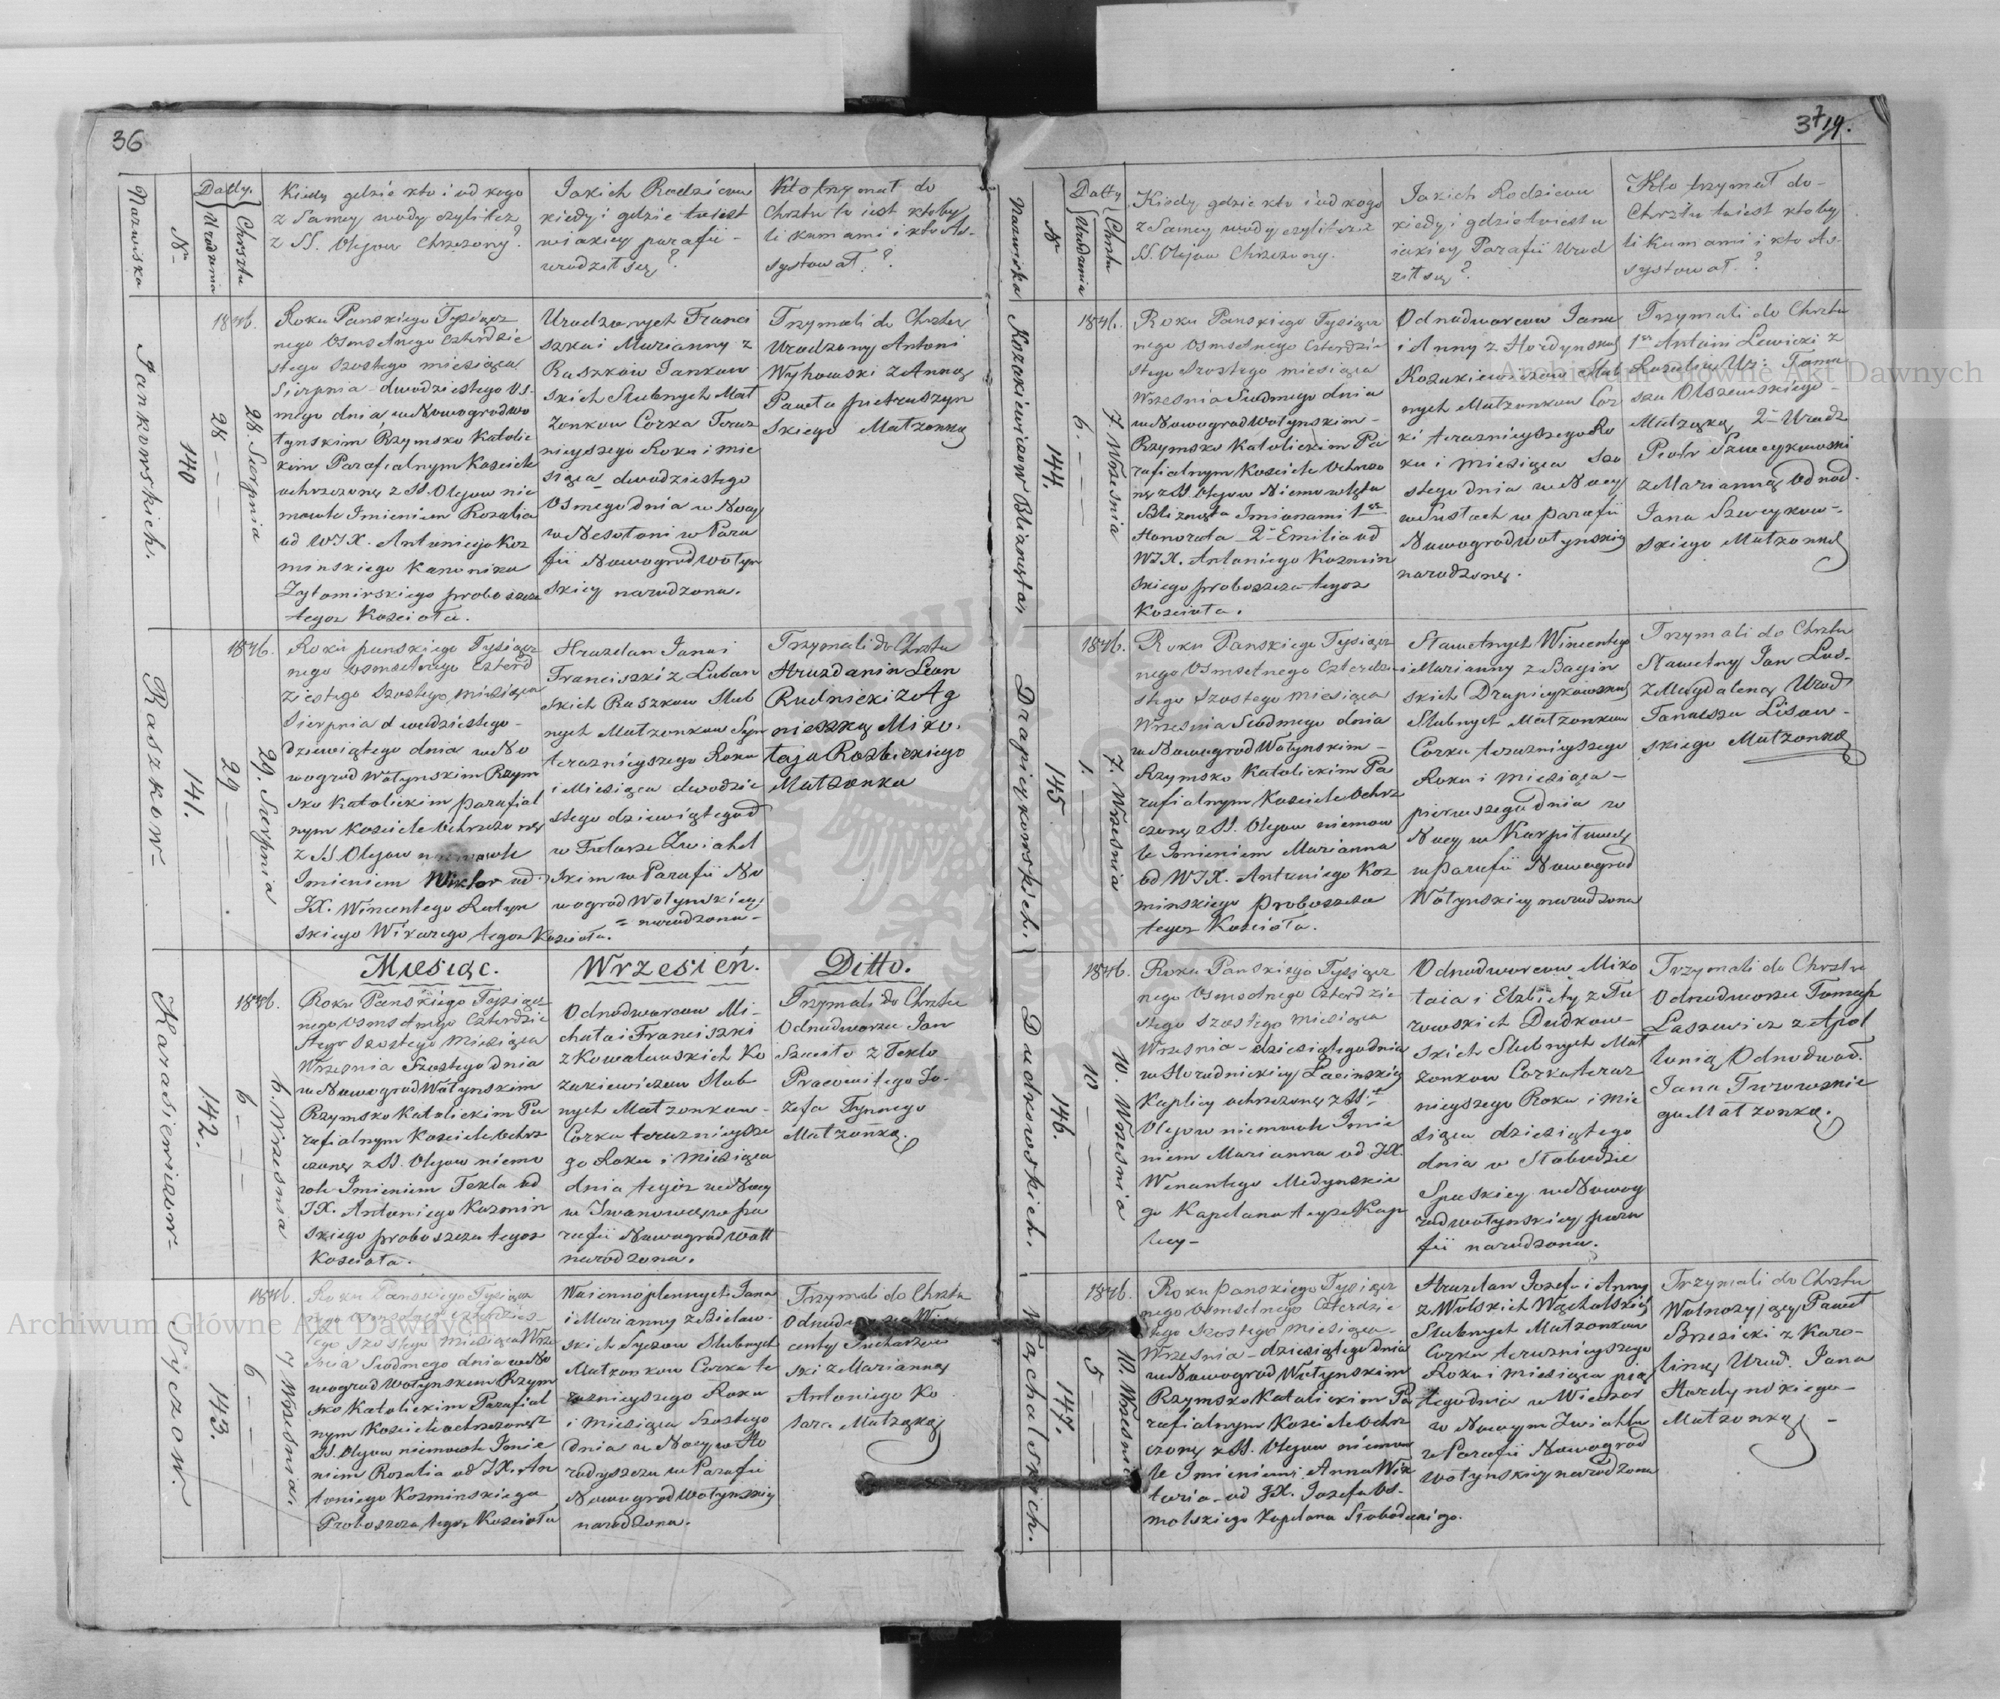 36
Nazwiska
Nr
Datty.
Urodzenia
Chrztu
Kiedy gdzie kto i od kogo
z Samey wody czyli też
z SS. Olejow Chrzczony?
Jakich Rodzicow
kiedy i gdzie to iest
w iakiey parafii
urodził się?
Kto trzymał do
Chrztu to iest kto by
li kumami i kto As-
systował?
Jankowskich.
140
28
28. Sierpnia
1846.
Roku Panskiego Tysiącz
nego Osmsetnego Czterdzie
stego Szostego miesiąca
Sierpnia dwudziestego Os-
mego dnia w Nowogrodwo
łynskim Rzymsko Katolic
kim Parafialnym Kosciele
ochrzczoną z SS. Olejow nie
mowle Imieniem Rozalia
od WJX. Antoniego Koz
minskiego Kanonika
Zytomirskiego proboszcza
tegoz Koscioła.
Urodzonych Franci
szka i Marianny z
Raszkow Jankow
skich Slubnych Mał
zonkow Corka Teraz
nieyszego Roku i mie
siąca dwudziestego
Osmego dnia w Nocy
w Nesołoni w Para
fii Nowogrodwołyn
skiey narodzona.
Trzymali do Chrztu
Urodzony Antoni
Wyhowski z Anną
Pawła Pietraszyn
skiego Małzonką
Raszkow
141.
29
29. Sierpnia
1846.
Roku panskiego Tysiącz
nego osmsetnego Czterd
ziestego Szostego miesiąca
Sierpnia dwudziestego
dziewiątego dnia w No
wogrod Wołynskim Rzym
sko Katolickim parafial
nym Kosciele Ochrzczoną
z SS Olejow niemowle
Imieniem Wiktor od
JX. Wincentego Ratyn
skiego Wikarego tegoz Koscioła.
Hrazdan Jana i
Franciszki z Luban
skich Raszkow Slub
nych Małzonkow Syn
teraznieyszego Roku
i Miesiąca dwudzie
stego dziewiątego d
w Futorze Zwiahel
skim w Parafii No
wogrod Wołynskiey
= narodzona -
Trzymali do Chrztu
Hrazdanin Leon
Rudnicki z Ag
nieszką Miko.
łaja Rozbickiego
Małzonka
Miesiąc. Wrzesień. Ditto.
Karasiewiczow
142.
6
6. Wrzesnia
1846.
Roku Panskiego Tysiącz
nego Osmsetnego Czterdzie
stego Szostego Miesiąca
Wrzesnia Szostego dnia
w Nowogrod Wołynskim
Rzymsko Katolickim Pa
rafialnym Kosciele Ochrz
czoną z SS. Olejow niemo
wle Imieniem Tekla od
JX. Antoniego Kozmin
skiego proboszcza tegoz
Koscioła.
Odnodworcow Mi-
chała i Franciszki
z Kowalewskich Ko
zakiewiczow Slub
nych Małzonkow
Corka terazniejsze
go Roku i Miesiąca
dnia tegoz w Nocy
w Iwanowce w pa
rafii Nowogradwoł
narodzona.
Trzymali do Chrztu
Odnodworzec Jan
Szasito z Teklo
Pracowitego Jo-
zefa Tynnego
Małzonką.
Syczow.
143.
6
7 Wrzesnia.
1846.
Roku Panskiego Tysiącz
nego Osmsetnego Czterdzies-
tego Szostego Miesiąca Wrze
snia Siodmego dnia w No
wogrod Wołynskim Rzym
sko Katolickim Parafial
nym Kosciele ochrzczoną z
SS. Olejow niemowle Imie
niem Rozalia od JX. An
toniego Kozminskiego
Proboszcza tegoz Koscioła
Woiennoplennych Jana
i Marianny z Bielaw-
skich Syczow Slubnych
Małzonkow Corka te
raznieyszego Roku
i Miesiąca Szostego
dnia w Nocy w Ho
rodyszczu w Parafii
Nowogrodwołynskiey
narodzona.
Trzymali do Chrztu
Odnodworzec Win
centy Sucharzew
ski z Marianną
Antoniego Ko
sara Małząką
37 19.
Nazwiska
Nr
Datty
Urodzenia
Chrztu
Kiedy gdzie kto i od kogo
z Samey wody czyli też z
SS. Olejow Chrzczony.
Jakich Rodzicow
kiedy i gdzie to iest w
iakiey Parafii Urod
ził się?
Kto trzymał do-
Chrztu to iest kto by
li kumami i kto As-
systował.?
Kozakiewiczow Blizniąta
144.
6.
7. Wrzesnia
1846.
Roku Panskiego Tysiącz
nego Osmsetnego Czterdzie
stego Szostego miesiąca
Wrzesnia Siodmego dnia
w Nowogrod Wołynskim
Rzymsko Katolickim Pa
rafialnym Kosciele Ochrzczo
ną z SS. Olejow Niemowlęta
Blizniąta Imionami 1sze
Honorata 2e Emilia od
WJX. Antoniego Kozmin
skiego proboszcza tegoz
Koscioła.
Odnodworcow Jana
i Anny z Hordynskich
Kozakiewiczow Slub
nych Małzonkow Cor
ki terazniejszego Ro
ku i Miesiąca Szo
stego dnia w Nocy
w Pustach w parafii
Nowogrodwołynskiey
narodzone.
Trzymali do Chrztu
1sze Antoni Lewicki z
Rozalią Ur: Toma
sza Olszewskiego
Małząką 2e Urodz
Piotr Szweykowski
z Marianną Odnod.
Jana Szweykow-
skiego Małzonką
Drapieykowskich.
145
1.
7. Wrzesnia
1846.
Roku Panskiego Tysiącz
nego Osmsetnego Czterdzie
stego Szostego Miesiąca
Wrzesnia Siodmego dnia
w Nowogrod Wołynskim
Rzymsko Katolickim Pa
rafialnym Kosciele Ochrz
czoną z SS. Olejow niemow
le Imieniem Marianna
od WJX. Antoniego Koz
minskiego Proboszcza
tegoz Koscioła.
Sławetnych Wincentego
i Marianny z Bagin
skich Drapieykowskich
Slubnych Małzonkow
Corka terazniejszego
Roku i Miesiąca
pierwszego dnia w
Nocy w Karpiłowce
w Parafii Nowogrod
Wołynskiey narodzona
Trzymali do Chrztu
Sławetny Jan Lus-
z Magdaleną Urod
Tanasza Lisow-
skiego Małzonką
Dudkowskich.
146.
10
10. Wrzesnia
1846.
Roku Panskiego Tysiącz
nego Osmsetnego Czterdzie
stego Szostego Miesiąca
Wrzesnia dziesiątego dnia
w Horodnickiey Łacinskiey
Kaplicy ochrzczoną z SS.
Olejow niemowle Imie
niem Marianna od JX.
Wenantego Medynskie
go Kapelana teyze Kap
licy-
Odnodworcow Miko
łaia i Elzbiety z Tu
rowskich Dudkow-
skich Slubnych Mał
zonkow Corka teraz
nieyszego Roku i Mie
siąca dziesiątego
dnia w Słobodzie
Spaskiey w Nowog
rodwołynskiey para
fii narodzona.
Trzymali do Chrztu
Odnodworzec Tomasz
Laszewicz z Apol
lonią Odnodwor.
Jana Turowskie
go Małzonką.
Wąchalskich.
147.
5
10. Wrzesnia
1846.
Roku panskiego Tysiącz
nego Osmsetnego Czterdzie
stego Szostego miesiąca
Wrzesnia dziesiątego dnia
w Nowogrod Wołynskim
Rzymsko Katolickim Pa
rafialnym Kosciele Ochrz
czoną z SS. Olejow niemow
le Imieniem Anna Wik
toria od JX. Jozefa Os-
molskiego Kapelana Słobodzkiego.
Hrazdan Jozefa i Anny
z Wolskich Wąchalskich
Slubnych Małzonkow
Corka terazniejszego
Roku i Miesiąca pią
tego dnia w Wieczor
w Nowym Zwiahlu
w Parafii Nowogrod
Wołynskiey narodzona
Trzymali do Chrztu
Wolnozyjący Paweł
Brzezicki z Karo-
liną Urod. Jana
Hordynskiego
Małzonką
Archiwum Główne Akt Dawnych
Archiwum Główne Akt Dawnych